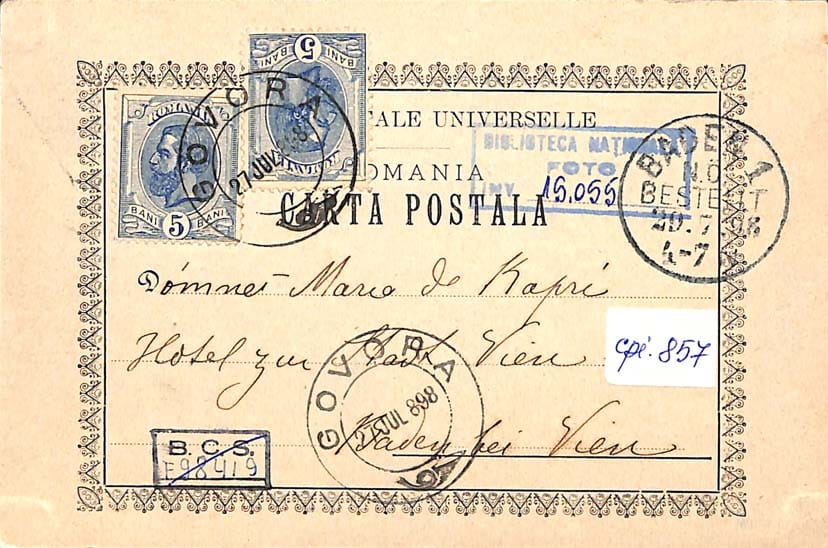 5
BANI BANI
ROMANIA
ROMANIA
BANI 5 BANI
GOVORA
27 JUL 898
ALE UNIVERSELLE
OMANIA
CARTA POSTALA
BIBLIOTECA NAȚIONALĂ
FOTO
INV. 15.055
BADEN 1
N.Ö.
BESTELLT
29.7.98
4-7
Domnei Maria de Kapri
Hotel zur Stadt Vien
cpi. 857
GOVORA
27 JUL 898
Baden bei Vien
B.C.S.
F98419